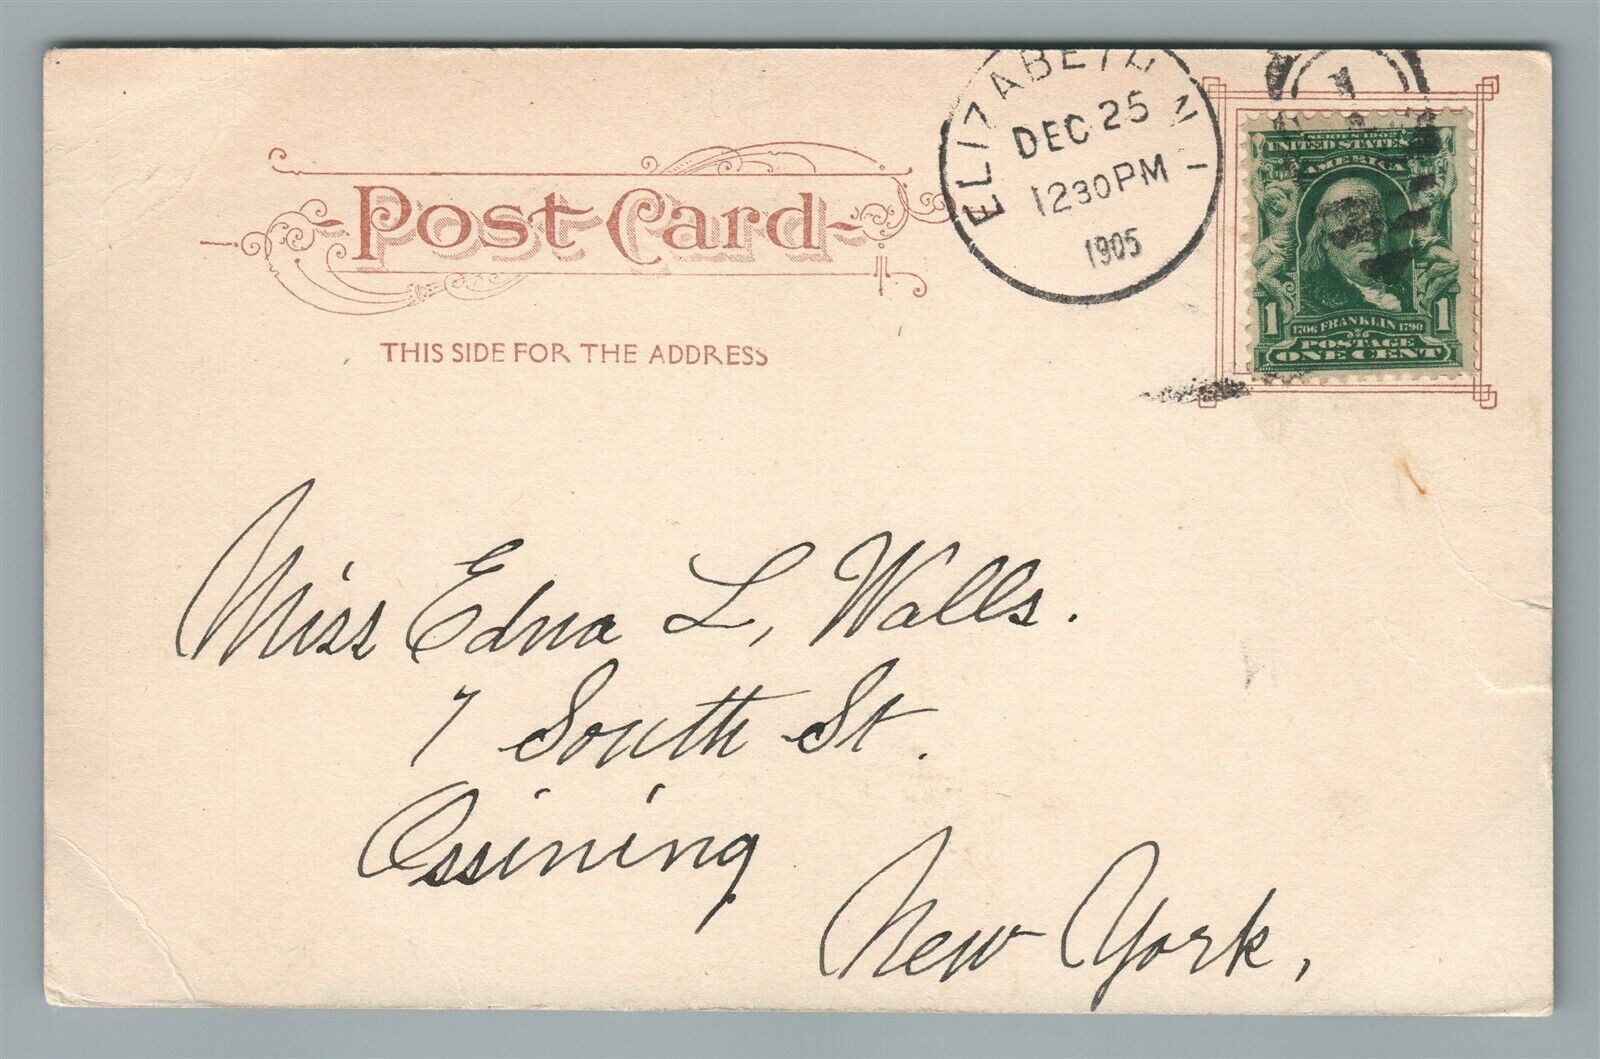 Post Card
THIS SIDE FOR THE ADDRESS
ELIZABETH N J
DEC 25
1230PM
1905
1
SERIES 1902
UNITED STATES
AMERICA
1 1
1706 FRANKLIN 1790
POSTAGE
ONE CENT
Miss Edna L, Walls.
7 South St.
Ossining
New York,